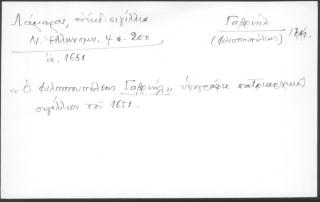 Λάμπρος, ἀνέκδ. σιγίλλια
Ν. Ἑλληνομν. 4 σ. 200
ἔτ. 1651
Γαβριήλ
(Φιλιππουπόλεως)
"Ὁ Φιλιππουπόλεως Γαβριήλ" ὑπογράφει πατριαρχικὸν
σιγίλλιον τοῦ 1651.